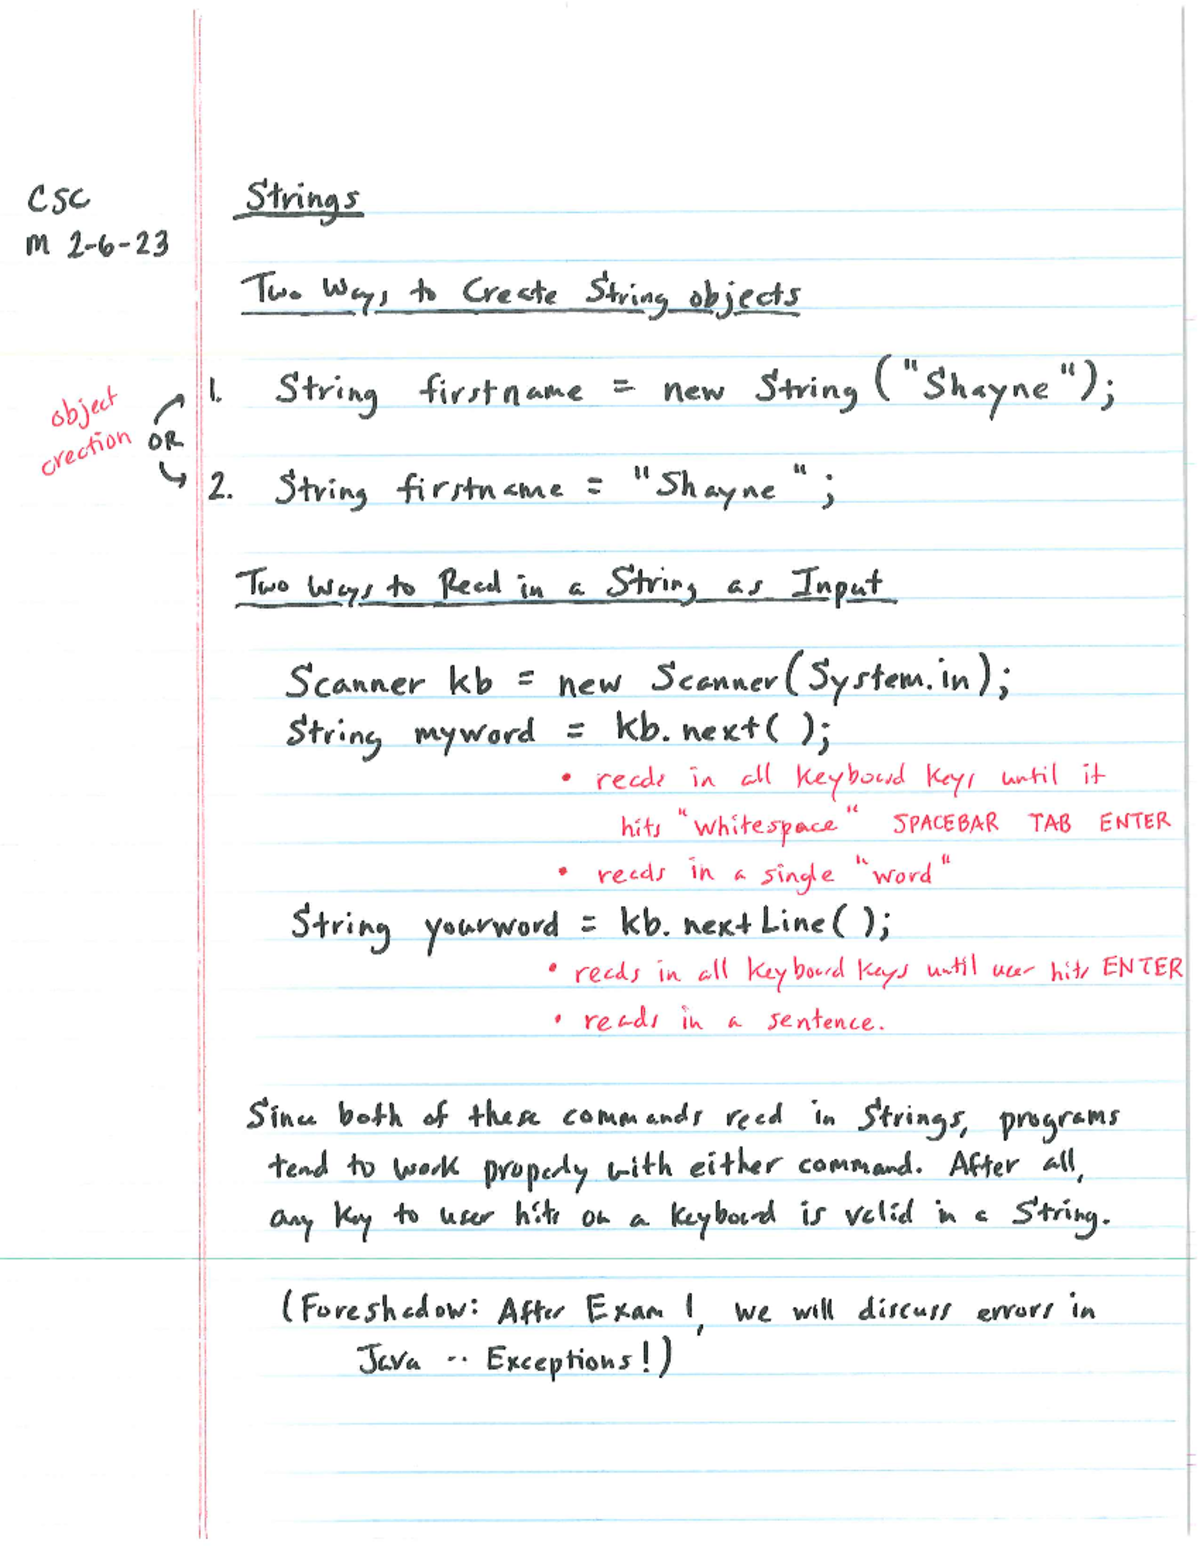 CSC
M 2-6-23
Strings
Two Ways to Create String objects
object
creation
OR
1. String firstname = new String ("Shayne");
2. String firstname = "Shayne";
Two Ways to Read in a String as Input
Scanner kb = new Scanner(System.in);
String myword = kb.next( );
• reads in all keyboard keys until it
hits "whitespace" SPACEBAR TAB ENTER
• reads in a single "word"
String yourword = kb.nextLine( );
• reads in all keyboard keys until user hits ENTER
• reads in a sentence.
Since both of these commands read in Strings, programs
tend to work properly with either command. After all,
any key to user hits on a keyboard is valid in a String.
(Foreshadow: After Exam 1, we will discuss errors in
Java -- Exceptions!)